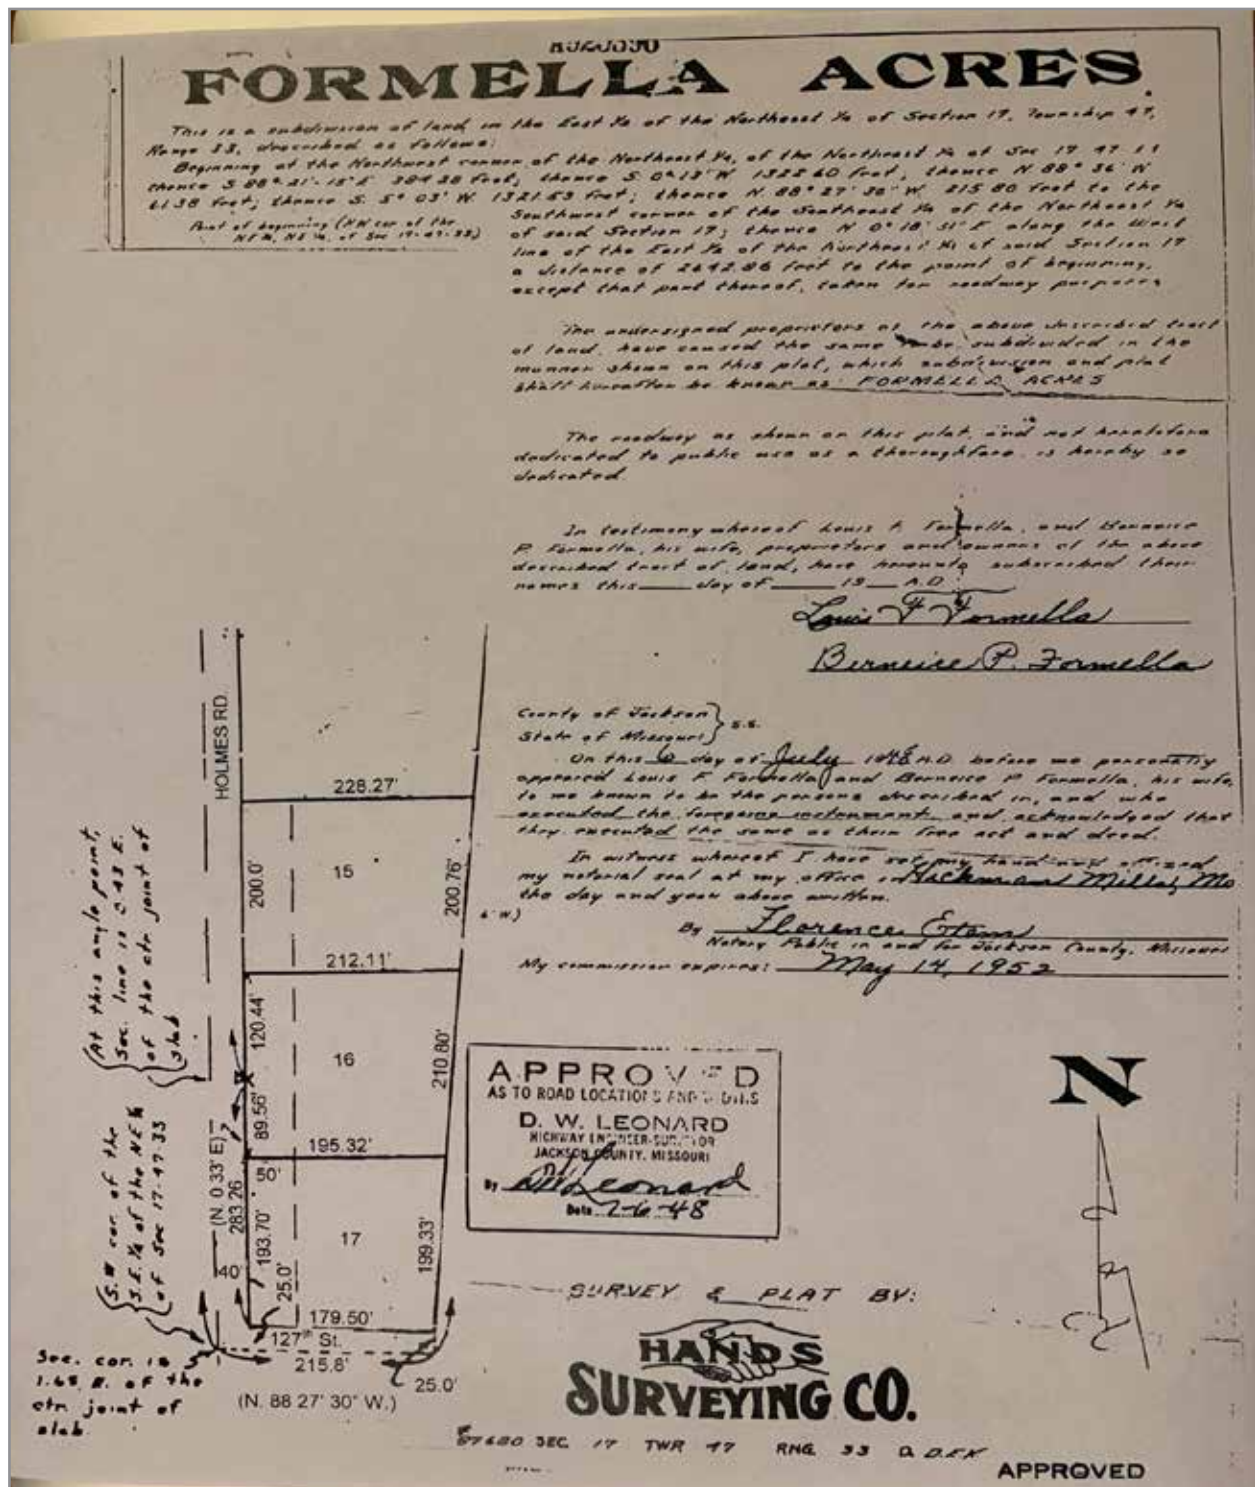 FORMELLA ACRES.
This is a subdivision of land, in the East ½ of the Northeast ¼ of Section 17, Township 47,
Range 33, described as follows:
Beginning at the Northwest corner of the Northeast ¼, of the Northeast ¼ of Sec 17-47-33
thence S 88° 21'-15" E 384.38 feet; thence S. 0° 13' W 1322.60 feet, thence N 88° 36' W
61.38 feet; thence S. 5° 03' W. 1321.53 feet; thence N. 88° 27' 30" W. 215.80 feet to the
Southwest corner of the Southeast ¼ of the Northeast ¼
of said Section 17; thence N 0° 18' 31" E along the West
line of the East ½ of the Northeast ¼ of said Section 17
a distance of 2642.86 feet to the point of beginning,
except that part thereof, taken for roadway purposes
Point of beginning (NW cor of the
NE¼, NE ¼, of Sec 17-47-33)
The undersigned proprietors of the above described tract
of land, have caused the same be subdivided in the
manner shown on this plat, which subdivision and plat
shall hereafter be known as FORMELLA ACRES
The roadway as shown on this plat, and not heretofore
dedicated to public use as a thoroughfare is hereby so
dedicated.
In testimony whereof Louis F. Formella, and Berneice
P. Formella, his wife, proprietors and owners of the above
described tract of land, have hereunto subscribed their
names this day of 19 A.D.
Louis F Formella
Berneice P. Formella
County of Jackson } S.S.
State of Missouri
On this 6 day of July 1948 A.D. before me personally
appeared Louis F Formella and Berneice P Formella, his wife,
to me known to be the persons described in, and who
executed the foregoing instrument and acknowledged that
they executed the same as their free act and deed.
In witness whereof I have set my hand and affixed
my notarial seal at my office in Hickman Mills, Mo
the day and year above written.
By Florence Etem
Notary Public in and for Jackson County, Missouri
My commission expires: May 14, 1952
HOLMES RD.
228.27'
200.0'
15
200.76'
212.11'
120.44'
16
210.80'
89.56'
195.32'
50'
(N. 0 33' E)
283.26
193.70'
17
199.33'
40'
25.0'
179.50'
127th St.
215.8'
25.0'
(N. 88 27' 30" W.)
(At this angle point,
Sec. line is 0.43 E.
of the ctr joint of
slab
(S.W cor. of the
S.E. ¼ of the N.E ¼
of Sec 17-47-33
Sec. cor. is
1.65 E. of the
ctr. joint of
slab
APPROVED
AS TO ROAD LOCATIONS AND WIDTHS
D. W. LEONARD
HIGHWAY ENGINEER-SURVEYOR
JACKSON COUNTY, MISSOURI
By DW Leonard
Date 7-6-48
N
SURVEY & PLAT BY:
HANDS
SURVEYING CO.
87680 SEC. 17 TWR 47 RNG. 33
APPROVED